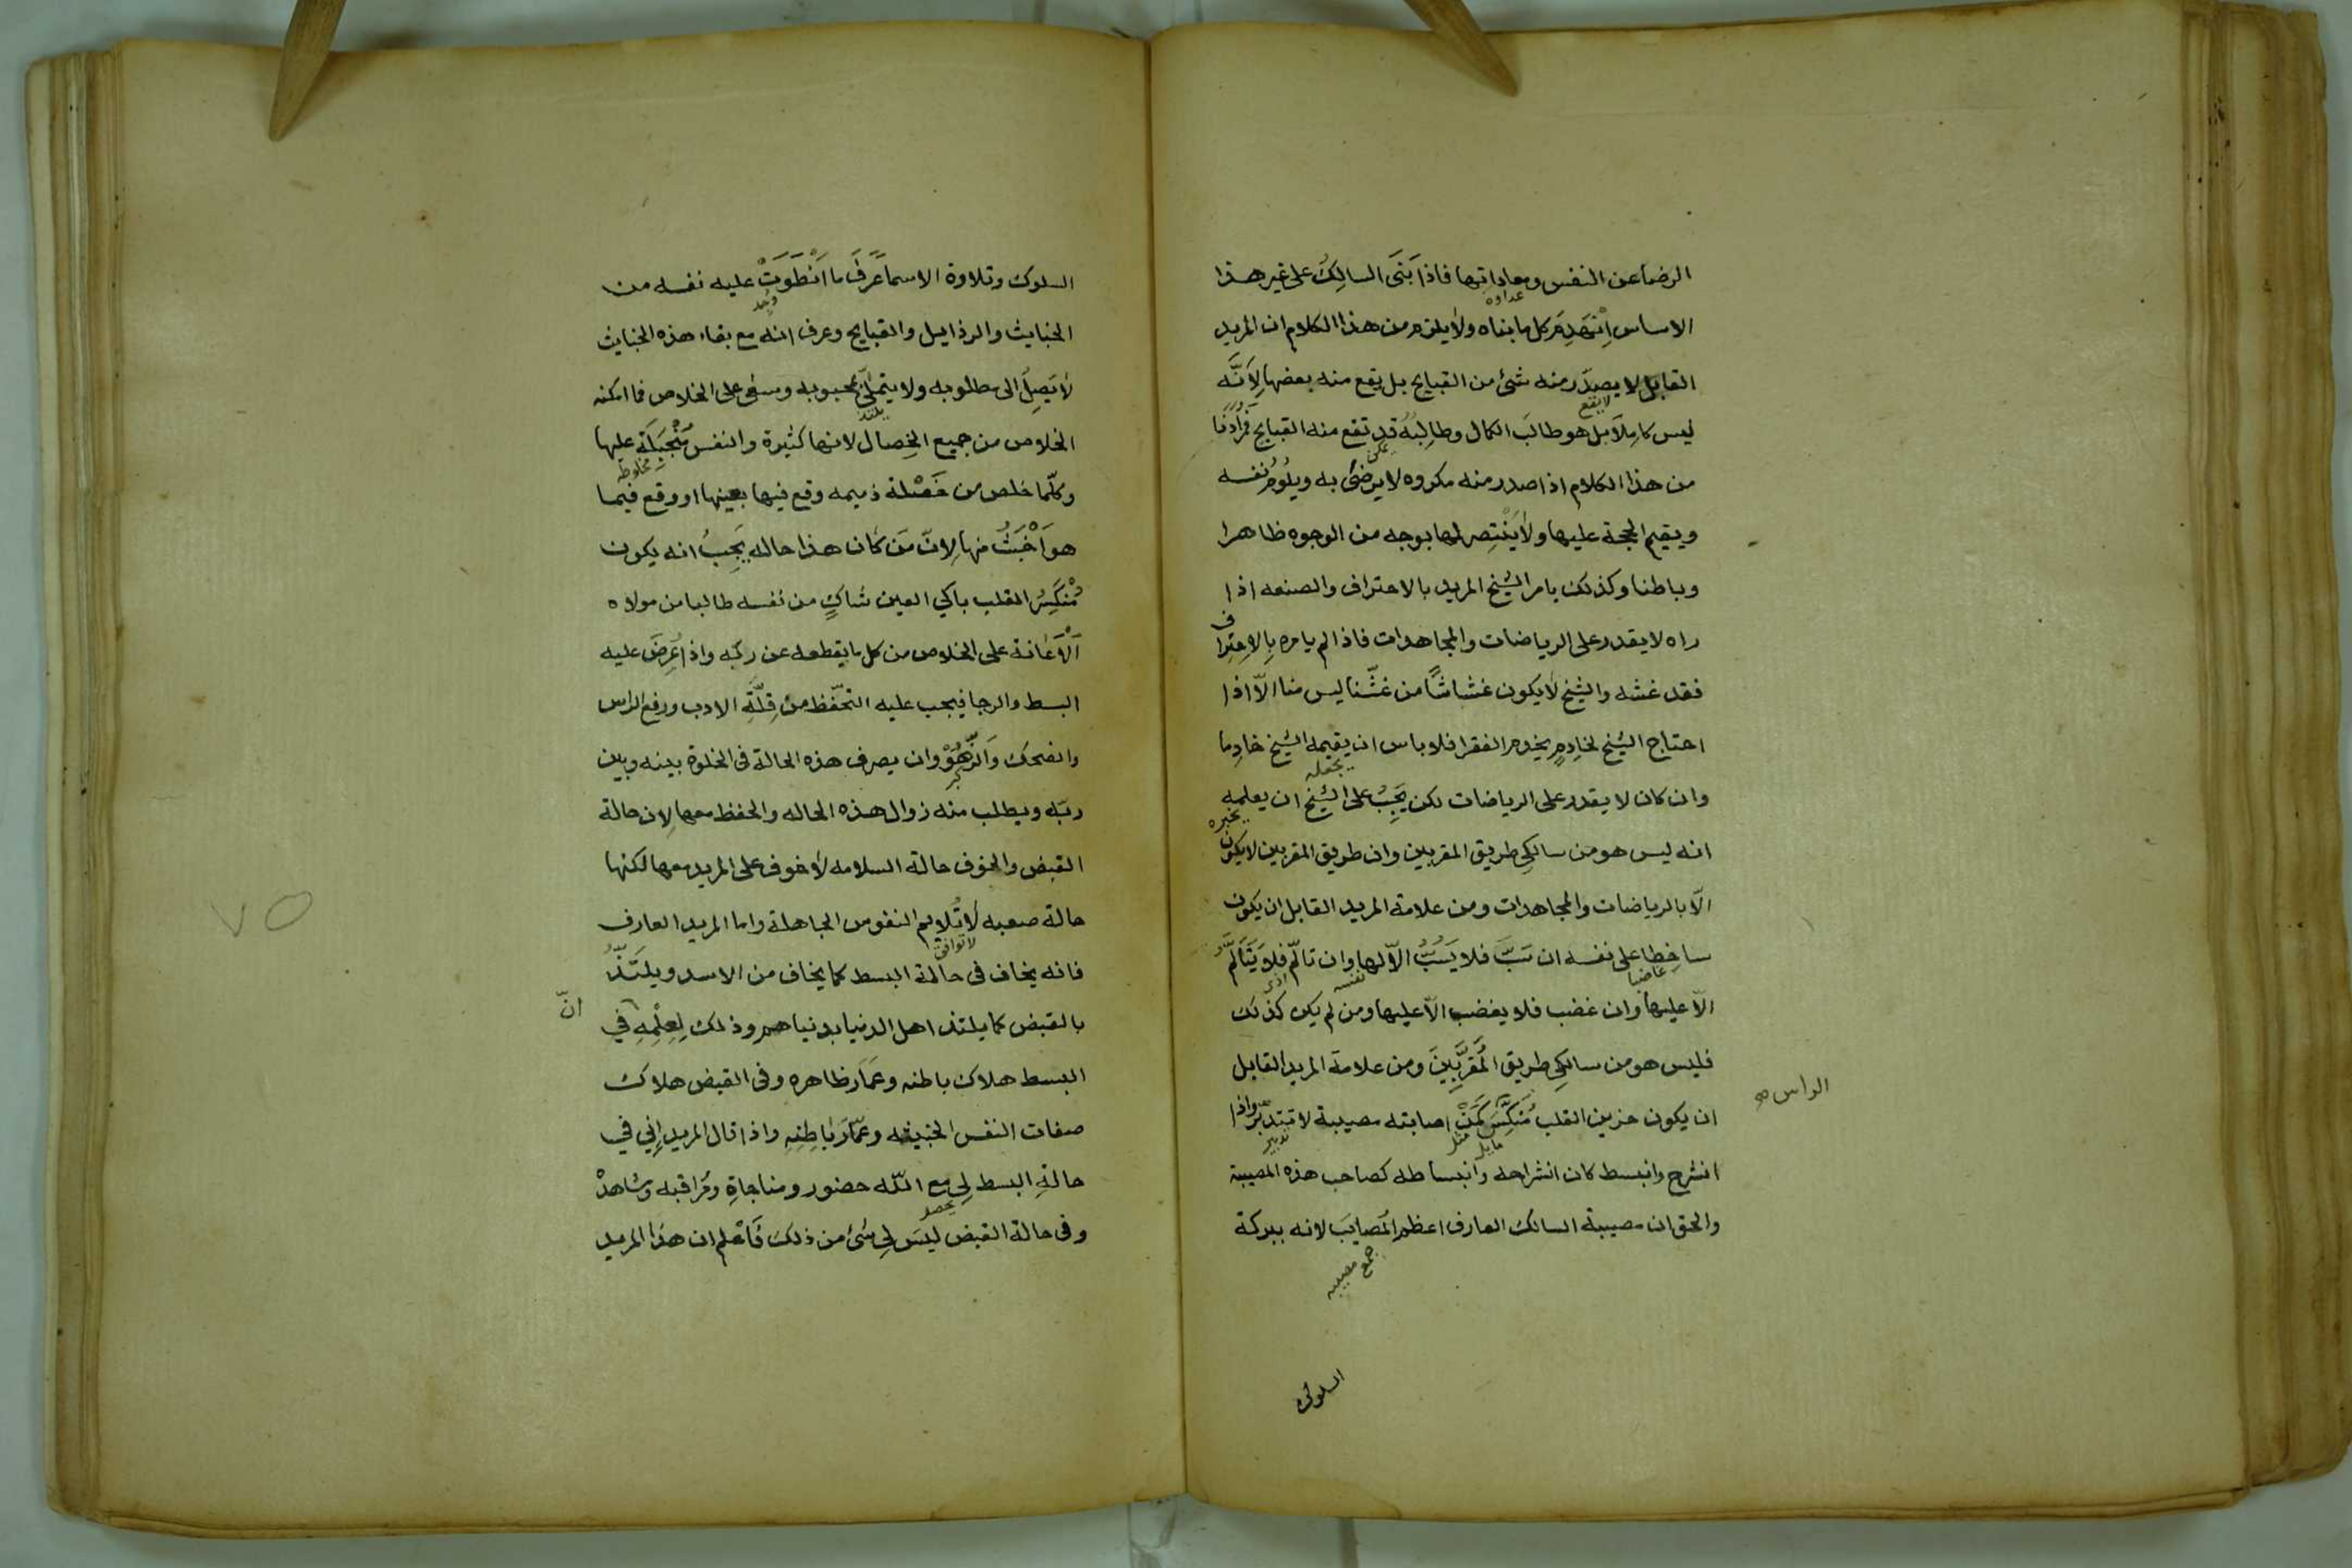 الرضا عن النفس ومعاداتها فاذا بَنَى السالِكُ على غير هذا
عداوه
الاساس اِنْهَدَمَ كل ما بناه ولا يلزم من هذا الكلام ان المريد
القابل لا يصدر منه شئ من القبايح بل يقع منه بعضها لِاَنَّه
لا يقع
ليس كامِلاً بل هو طالبَ الكمال وطالِبُهُ قد تقع منه القبايح فمرادنا
يمكن
من هذا الكلام اذا صدر منه مكروه لا يرضَى به ويلُومُ نفسه
ويقيم الحجة عليها ولا يَنْتَصِر لها بوجه من الوجوه ظاهرا
وباطنا وكذلك يامر الشيخ المريد بالاحتراف والصنعه اذا
راه لا يقدر على الرياضات والمجاهدات فاذا لم يامره بِالاِحتِراف
فقد غشه والشيخ لا يكون غشاشًا من غشّنا ليس منا الّا اذا
احتاج الشيخ لخادِمٍ يخدم الفقرا فلا باس ان يقيمه الشيخ خادِما
يجعله
وان كان لا يقدر على الرياضات لكن يَجِبُ على الشيخ ان يعلمه
يخبره
انه ليس هو من سالكِى طريق المقربين وان طريق المقربين لا يكون
الّا بالرياضات والمجاهدات ومن علامة المريد القابل ان يكون
ساخِطا على نفسه ان سَبَّ فلا يَسُبُّ الّا لها وان تالّم فلا يَتَالَّمُ
غاضبا نفسه اذى
الّا عليها وان غضب فلا يغضب الّا عليها ومن لم يكن كذلك
فليس هو من سالكِى طريق المُقَرَّبِينَ ومن علامة المريد القابل
الراس صح
ان يكون حزين القلب مُنَكَّسَ كَمَنْ اصابته مصيبة لا تبتدبّر واذا
مايل مثل تدبير
انشرح وانبسط كان انشراحه وانبساطه كصاحب هذه المصيبة
والحق ان مصيبة السالك العارف اعظم المَصايبَ لانه ببركة
جمع مصيبه
السلوك
السلوك وتلاوة الاسما عَرَفَ ما اَنْطَوَتْ عليه نفسه من
وجد
الخبايث والرذايل والقبايح وعرف انه مع بقاء هذه الخبايث
لا يَصِلُ الى مطلوبه ولا يتملّى بمحبوبه وسعى على الخلاص فما امكنه
يلتذ
الخلاص من جميع الخِصال لانها كثيرة والنفس مُنْجَبِلَة عليها
مخلوطه
وكلّما خلص من خَصْلة ذميمه وقع فيها بعينها او وقع فيما
هو اَخْبَثُ منها لِانّ مَن كان هذا حاله يَجِبُ انه يكون
مُنْكَسِرُ القلب باكي العين شاكٍ من نفسه طالبا من مولاه
اَلْاَعَانة على الخلاص من كل ما يقطعه عن ربّه واذا عَرِضَ عليه
البسط والرجا فيجب عليه التحّفظ من قِلَّةِ الادب ورفع الراس
والضحك وَالزَّهُوْ وان يصرف هذه الحالة فى الخلوة بينه وبين
كبر
ربّه ويطلب منه زوال هذه الحاله والحفظ معها لِان حالة
القبض والخوف حالة السلامه لا خوف على المريد معها لكنها
حالة صعبه لَا تُلايم النفوس الجاهلة واما المريد العارف
لا توافق
فانه يخاف فى حالة البسط كما يخاف من الاسد ويلتَذُّ
بالقبض كما يلتذ اهل الدنيا بدنياهم وذلك لِعِلْمِهِ فى
انّ
البسط هلاك باطنه وعَمَارَ ظاهره وفى القبض هلاك
صفات النفس الخبيثه وعَمّارَ باطِنِهِ واذا قال المريد اِنِي في
حالةِ البسط لِى مع الله حضور ومناجاةِ ومُراقبه وشاهدْ
يحصل
وفى حالة القبض ليسَ لِى شئ من ذلك فَاعْلم ان هذا المريد
٧٥